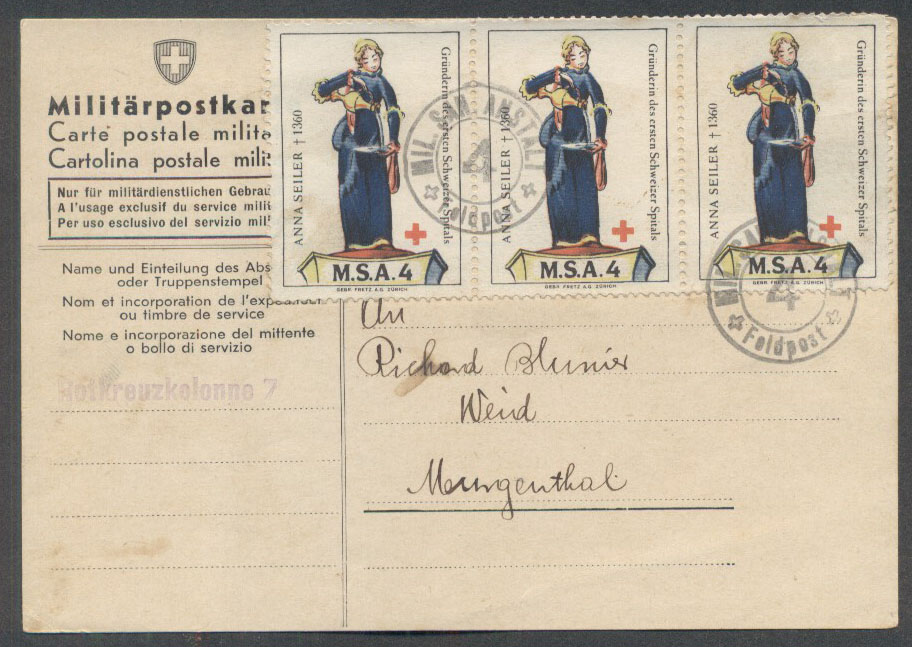 Militärpostkar
Carte postale milita
Cartolina postale milit
Nur für militärdienstlichen Gebrau
A l'usage exclusif du service mili
Per uso esclusivo del servizio mil
Name und Einteilung des Abs
oder Truppenstempel
Nom et incorporation de l'expéditeur
ou timbre de service
Nome e incorporazione del mittente
o bollo di servizio
Rotkreuzkolonne 7
ANNA SEILER † 1360
Gründerin des ersten Schweizer Spitals
M.S.A. 4
GEBR. FRETZ A.G. ZÜRICH
ANNA SEILER † 1360
Gründerin des ersten Schweizer Spitals
M.S.A. 4
GEBR. FRETZ A.G. ZÜRICH
ANNA SEILER † 1360
Gründerin des ersten Schweizer Spitals
M.S.A. 4
GEBR. FRETZ A.G. ZÜRICH
MIL. SAN. ANSTALT
4
Feldpost
MIL. SAN.
4
Feldpost
An
Richard Blunier
Weid
Murgenthal